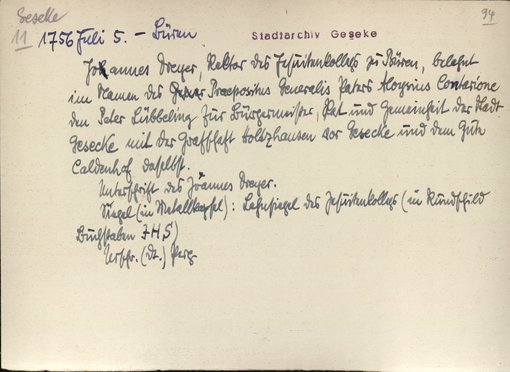 Geseke 94
11 1756 Juli 5. – Büren Stadtarchiv Geseke
Johannes Dreyer, Rektor des Jesuitenkollegs zu Büren, belehnt
im Namen des Praepositus Generalis Paters Aloysius Centurione
den Peter Lübbeling für Bürgermeister, Rat und Gemeinheit der Stadt
Gesecke mit der Grafschaft Holtzhausen vor Gesecke und dem Gute
Caldenhof daselbst.
Unterschrift des Joannes Dreyer.
Siegel (in Metallkapsel): Lehnsiegel des Jesuitenkollegs (in Rundschild
Buchstaben JHS)
Urschr. (dt.) Perg.